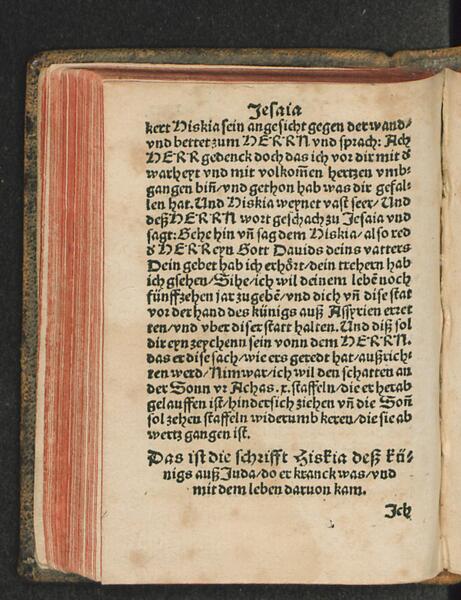 Jesaia
kert Hiskia sein angesicht gegen der wand/
vnd bettet zum HERRN vnd sprach: Ach
HERR gedenck doch das ich vor dir mit d̕
warheyt vnd mit volkom̄en hertzen vmb-
gangen biñ/ vnd gethon hab was dir gefal-
len hat. Und Hiskia weynet vast seer/ Und
deß HERRN wort geschach zu Jesaia vnd
sagt: Gehe hin vñ sag dem Hiskia/ also red
d̕ HERR eyn Gott Dauids deins vatters
Dein gebet hab ich erhört/ dein trehern hab
ich gsehen/ Sihe/ ich wil deinem lebē noch
fünffzehen jar zugebē/ vnd dich vñ dise stat
vor der hand des künigs auß Assyrien erret
ten/ vnd vber diser statt halten. Und diß sol
dir eyn zeychenn sein vonn dem HERRN.
das er dise sach/ wie ers geredt hat/ außrich-
ten werd/ Nim war/ ich wil den schatten an
der Sonn vr Achas .x. staffeln/ die er herab
gelauffen ist/ hindersich ziehen vñ die Soñ
sol zehen staffeln widerumb keren/ die sie ab
wertz gangen ist.
Das ist die schrifft Hiskia deß kü-
nigs auß Juda/ do er kranck was/ vnd
mit dem leben daruon kam.
Ich